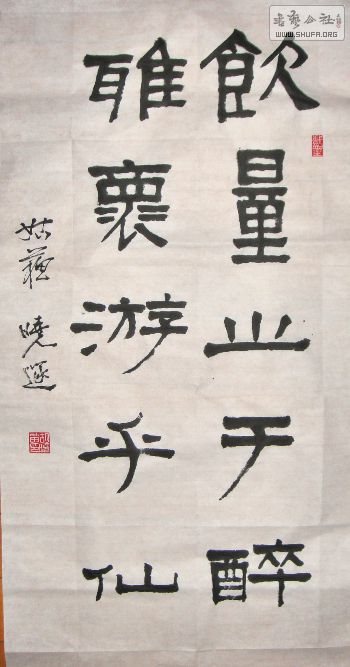 飲量止于醉
雅褱游乎仙
姑蘇 曉
書藝公社
WWW.SHUFA.ORG